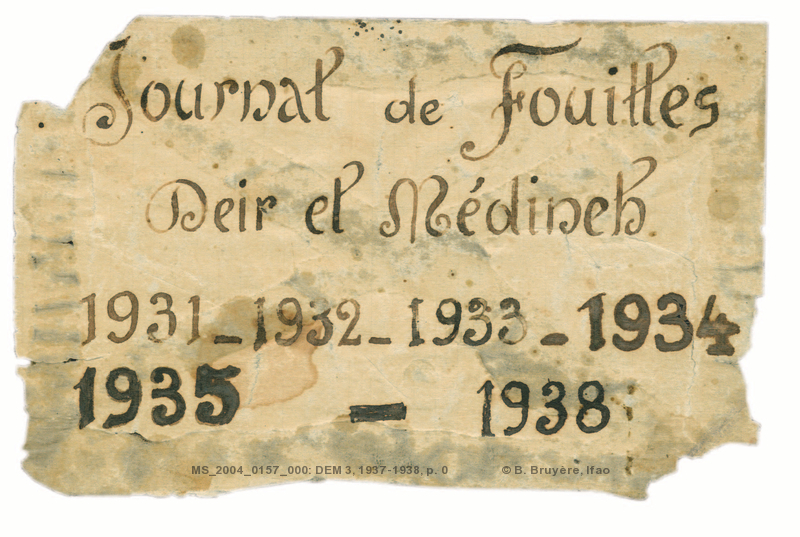 Journal de Fouilles
Deir el Médineh.
1931_1932_1933_1934
1935 — 1938
MS_2004_0157_000; DEM 3, 1937-1938, p. 0 © B. Bruyère, Ifao